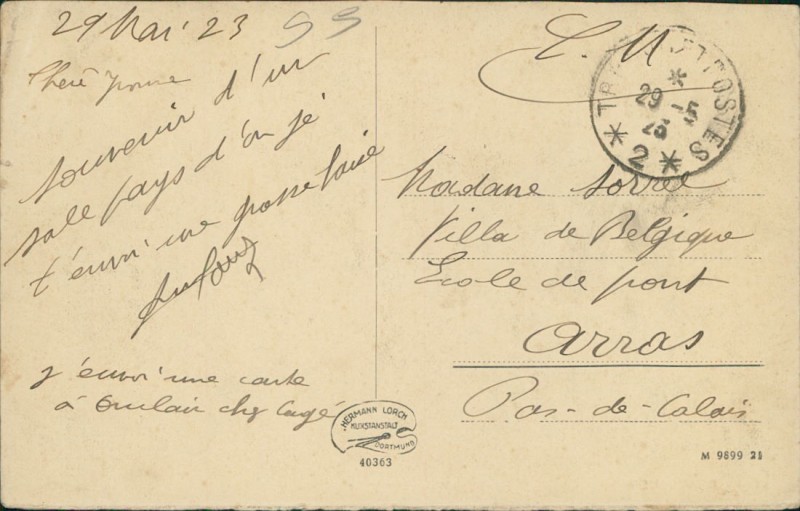 29 Mai 23
Cheré Yvonne
souvenir d'un
sale pays d'ou je
t'envoi une grosse
j'envoi une carte
à chez
F. M.
TRÉSOR ET POSTES
29 - 5
23
* 2 *
Madame Sorrel
Villa de Belgique
Ecole de pont
Arras
Pas-de-Calais
HERMANN LORCH
KUNSTANSTALT
DORTMUND
40363
M 9899 21